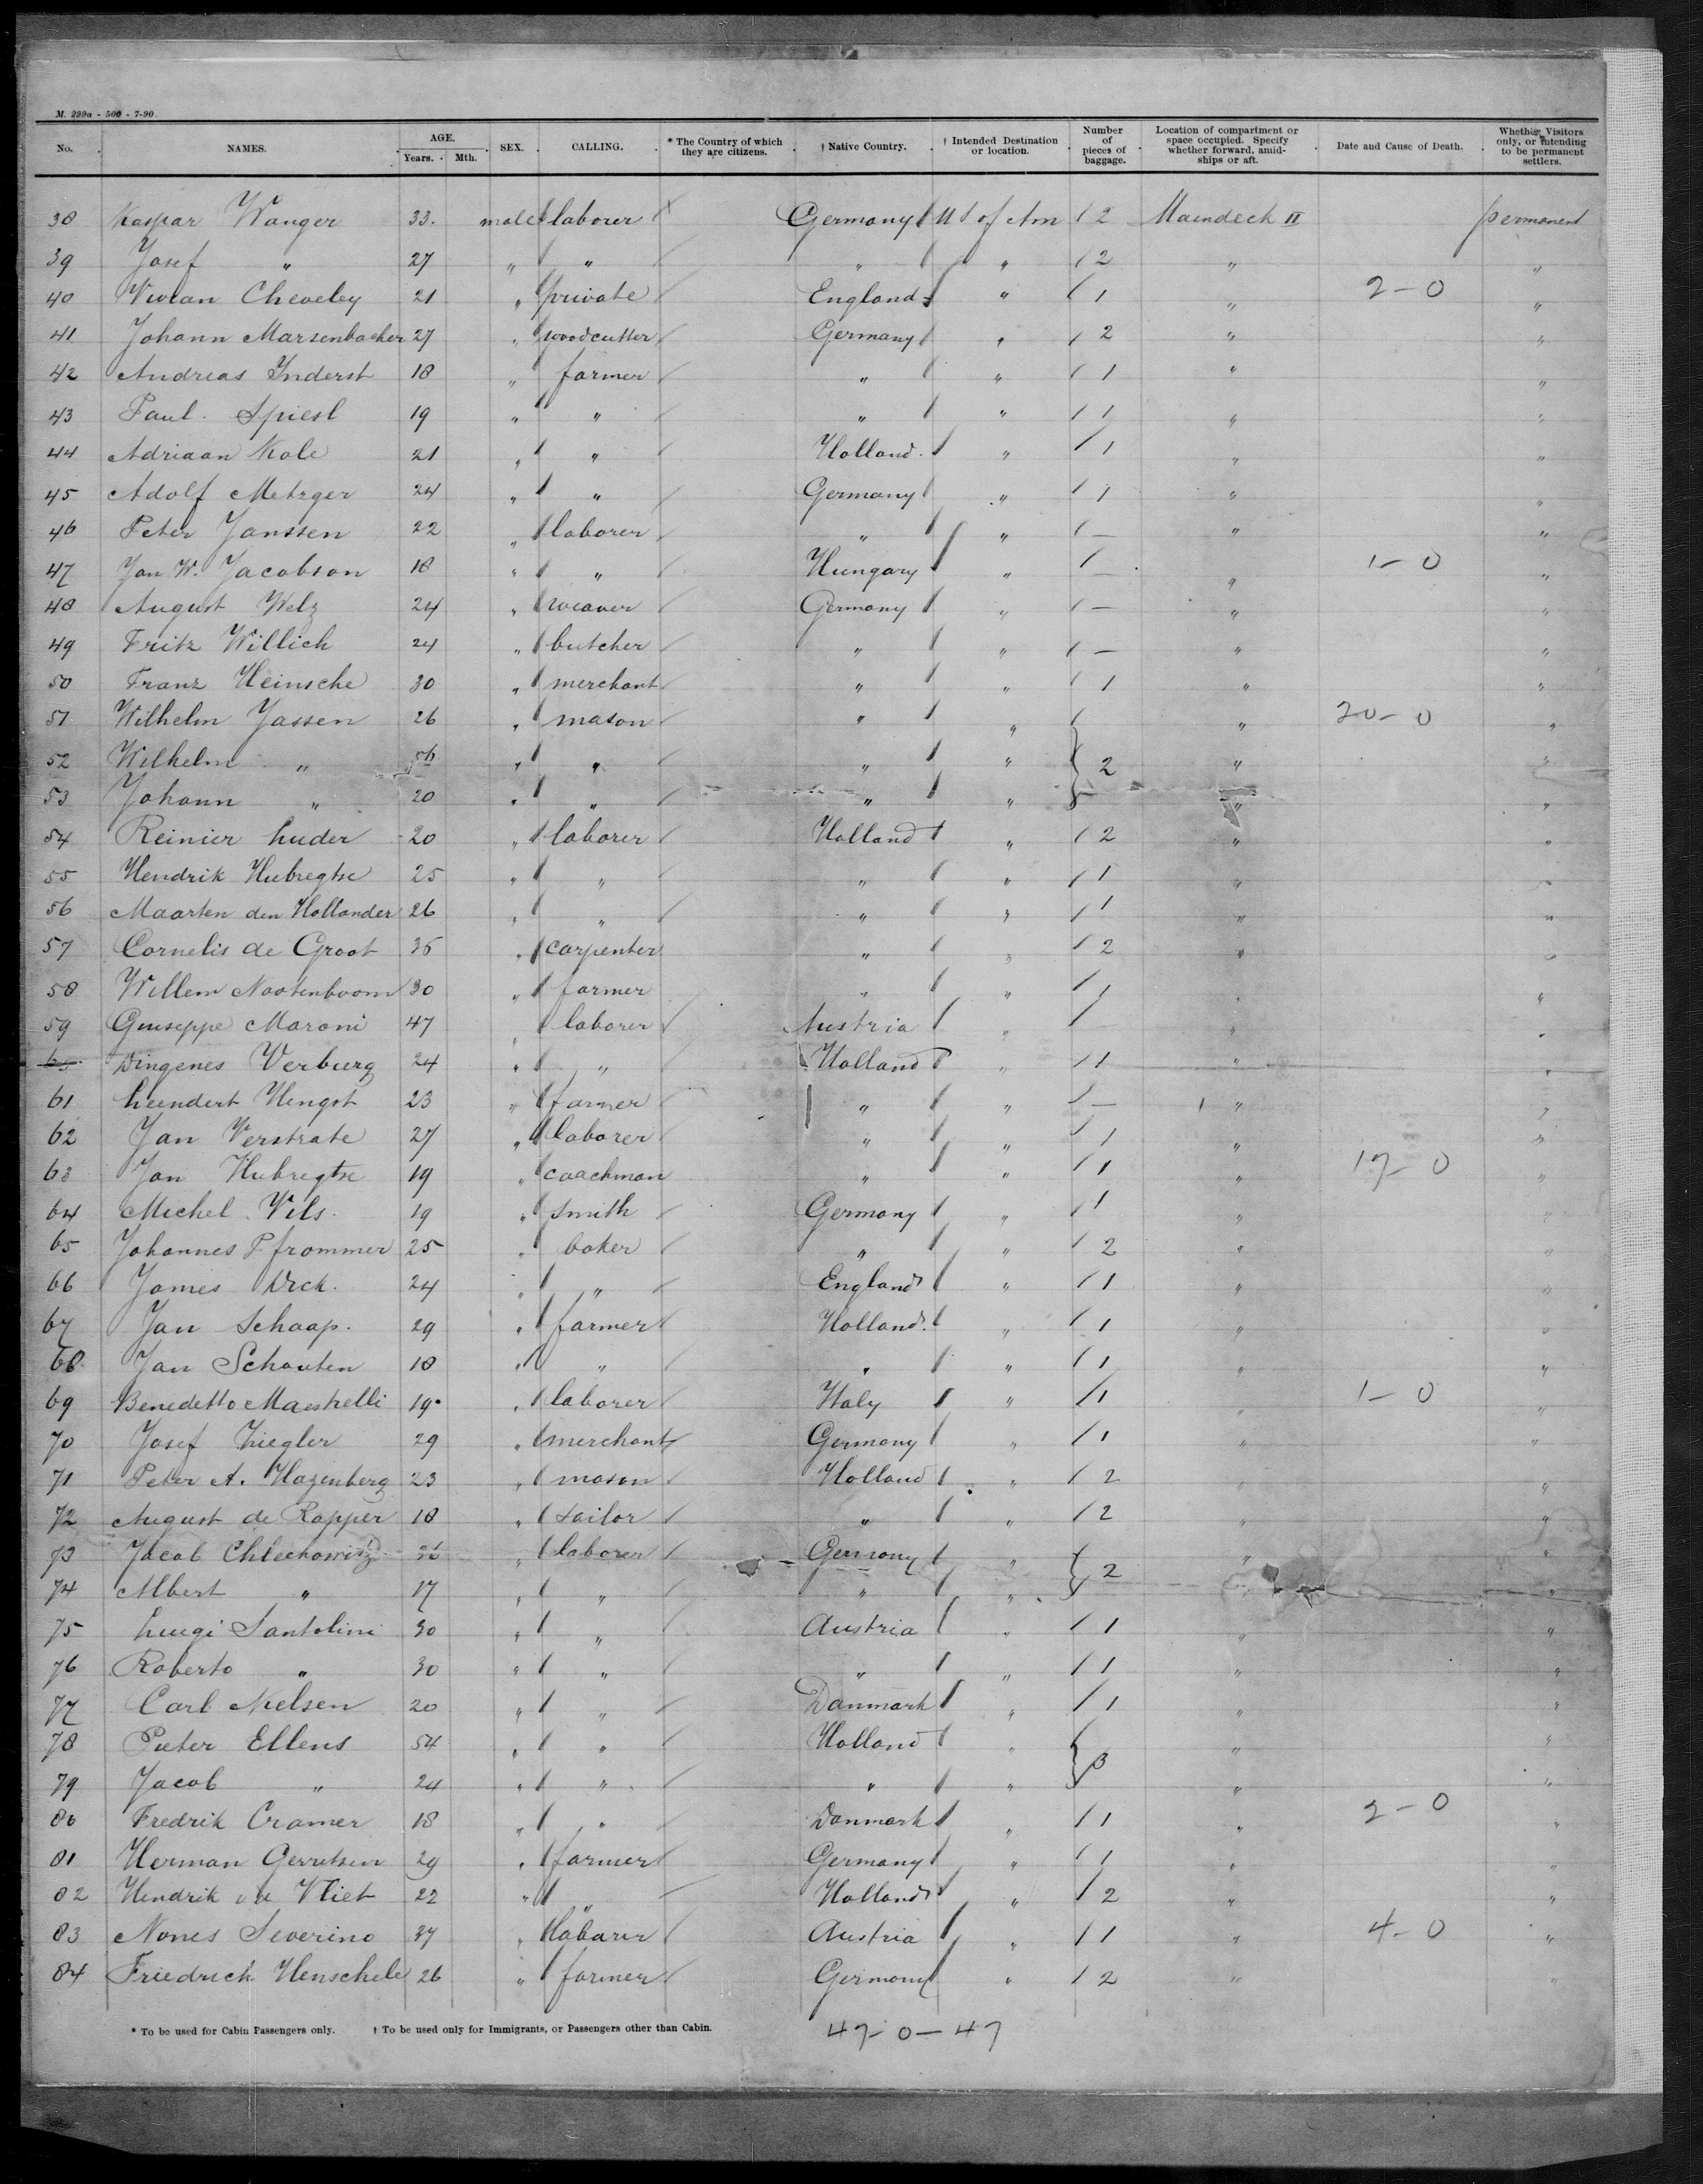 M. 299a - 500 - 7-90.
No. NAMES. AGE. Years. Mth. SEX. CALLING. * The Country of which they are citizens. † Native Country. † Intended Destination or location. Number of pieces of baggage. Location of compartment or space occupied. Specify whether forward, amidships or aft. Date and Cause of Death. Whether Visitors only, or intending to be permanent settlers.
38 Kaspar Wanger 33. male laborer Germany U S of Am 2 Maindeck II permanent
39 Josef " 27 " " " " 2 " "
40 Vivian Cheveley 21 " private England " 1 " 2-0 "
41 Johann Marsenbacher 27 " woodcutter Germany " 2 " "
42 Andreas Inderst 18 " farmer " " 1 " "
43 Paul Spiesl 19 " " " " 1 " "
44 Adriaan Kole 21 " " Holland " 1 " "
45 Adolf Metzger 24 " " Germany " 1 " "
46 Peter Janssen 22 " laborer " " — " "
47 Jan W. Jacobson 18 " " Hungary " — " 1-0 "
48 August Welz 24 " weaver Germany " — " "
49 Fritz Willich 24 " butcher " " — " "
50 Franz Heinsche 30 " merchant " " 1 " "
51 Wilhelm Jassen 26 " mason " " " 20-0 "
52 Wilhelm " 56 " " " " 2 " "
53 Johann " 20 " " " " " "
54 Reinier Luder 20 " laborer Holland " 2 " "
55 Hendrik Hubregtse 25 " " " " 1 " "
56 Maarten den Hollander 26 " " " " 1 " "
57 Cornelis de Groot 36 " carpenter " " 2 " "
58 Willem Nootenboom 30 " farmer " " 1 " "
59 Giuseppe Maroni 47 " laborer Austria " " "
Dingenes Verburg 24 " " Holland " 1 " "
61 Leendert Hengst 23 " farmer " " — " "
62 Jan Verstrate 27 " laborer " " 1 " "
63 Jan Hubregtse 19 " coachman " " 1 " 17-0 "
64 Michel Vils 19 " smith Germany " 1 " "
65 Johannes Pfrommer 25 " baker " " 2 " "
66 James Dick 24 " " England " 1 " "
67 Jan Schaap. 29 " farmer Holland. " 1 " "
68 Jan Schouten 18 " " " " 1 " "
69 Benedetto Maestrelli 19 " laborer Italy " 1 " 1-0 "
70 Josef Ziegler 29 " merchant Germany " 1 " "
71 Peter A. Hazenberg 23 " mason Holland " 2 " "
72 August de Rapper 18 " sailor " " 2 " "
73 Jacob Chlechowitz 36 " laborer Germany " 2 " "
74 Albert " 17 " " " " " "
75 Luigi Santolini 30 " " Austria " 1 " "
76 Roberto " 30 " " " " 1 " "
77 Carl Nielsen 20 " " Danmark " 1 " "
78 Pieter Ellens 54 " " Holland " 3 " "
79 Jacob " 24 " " " " " "
80 Fredrik Cramer 18 " " Danmark " 1 " 2-0 "
81 Herman Gerritsen 29 " farmer Germany " 1 " "
82 Hendrik v d Vliet 22 " " Holland " 2 " "
83 Nones Severino 37 " labarer Austria " 1 " 4-0 "
84 Friedrich Henschele 26 " farmer Germany " 2 " "
* To be used for Cabin Passengers only. † To be used only for Immigrants, or Passengers other than Cabin. 47-0-47